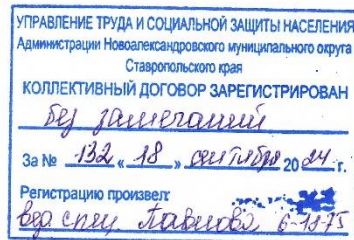 УПРАВЛЕНИЕ ТРУДА И СОЦИАЛЬНОЙ ЗАЩИТЫ НАСЕЛЕНИЯ
Администрации Новоалександровского муниципального округа
Ставропольского края
КОЛЛЕКТИВНЫЙ ДОГОВОР ЗАРЕГИСТРИРОВАН
без замечаний
За № 132 « 18 » сентября 2024 г.
Регистрацию произвел:
вед спец. Павлова 6-18-75